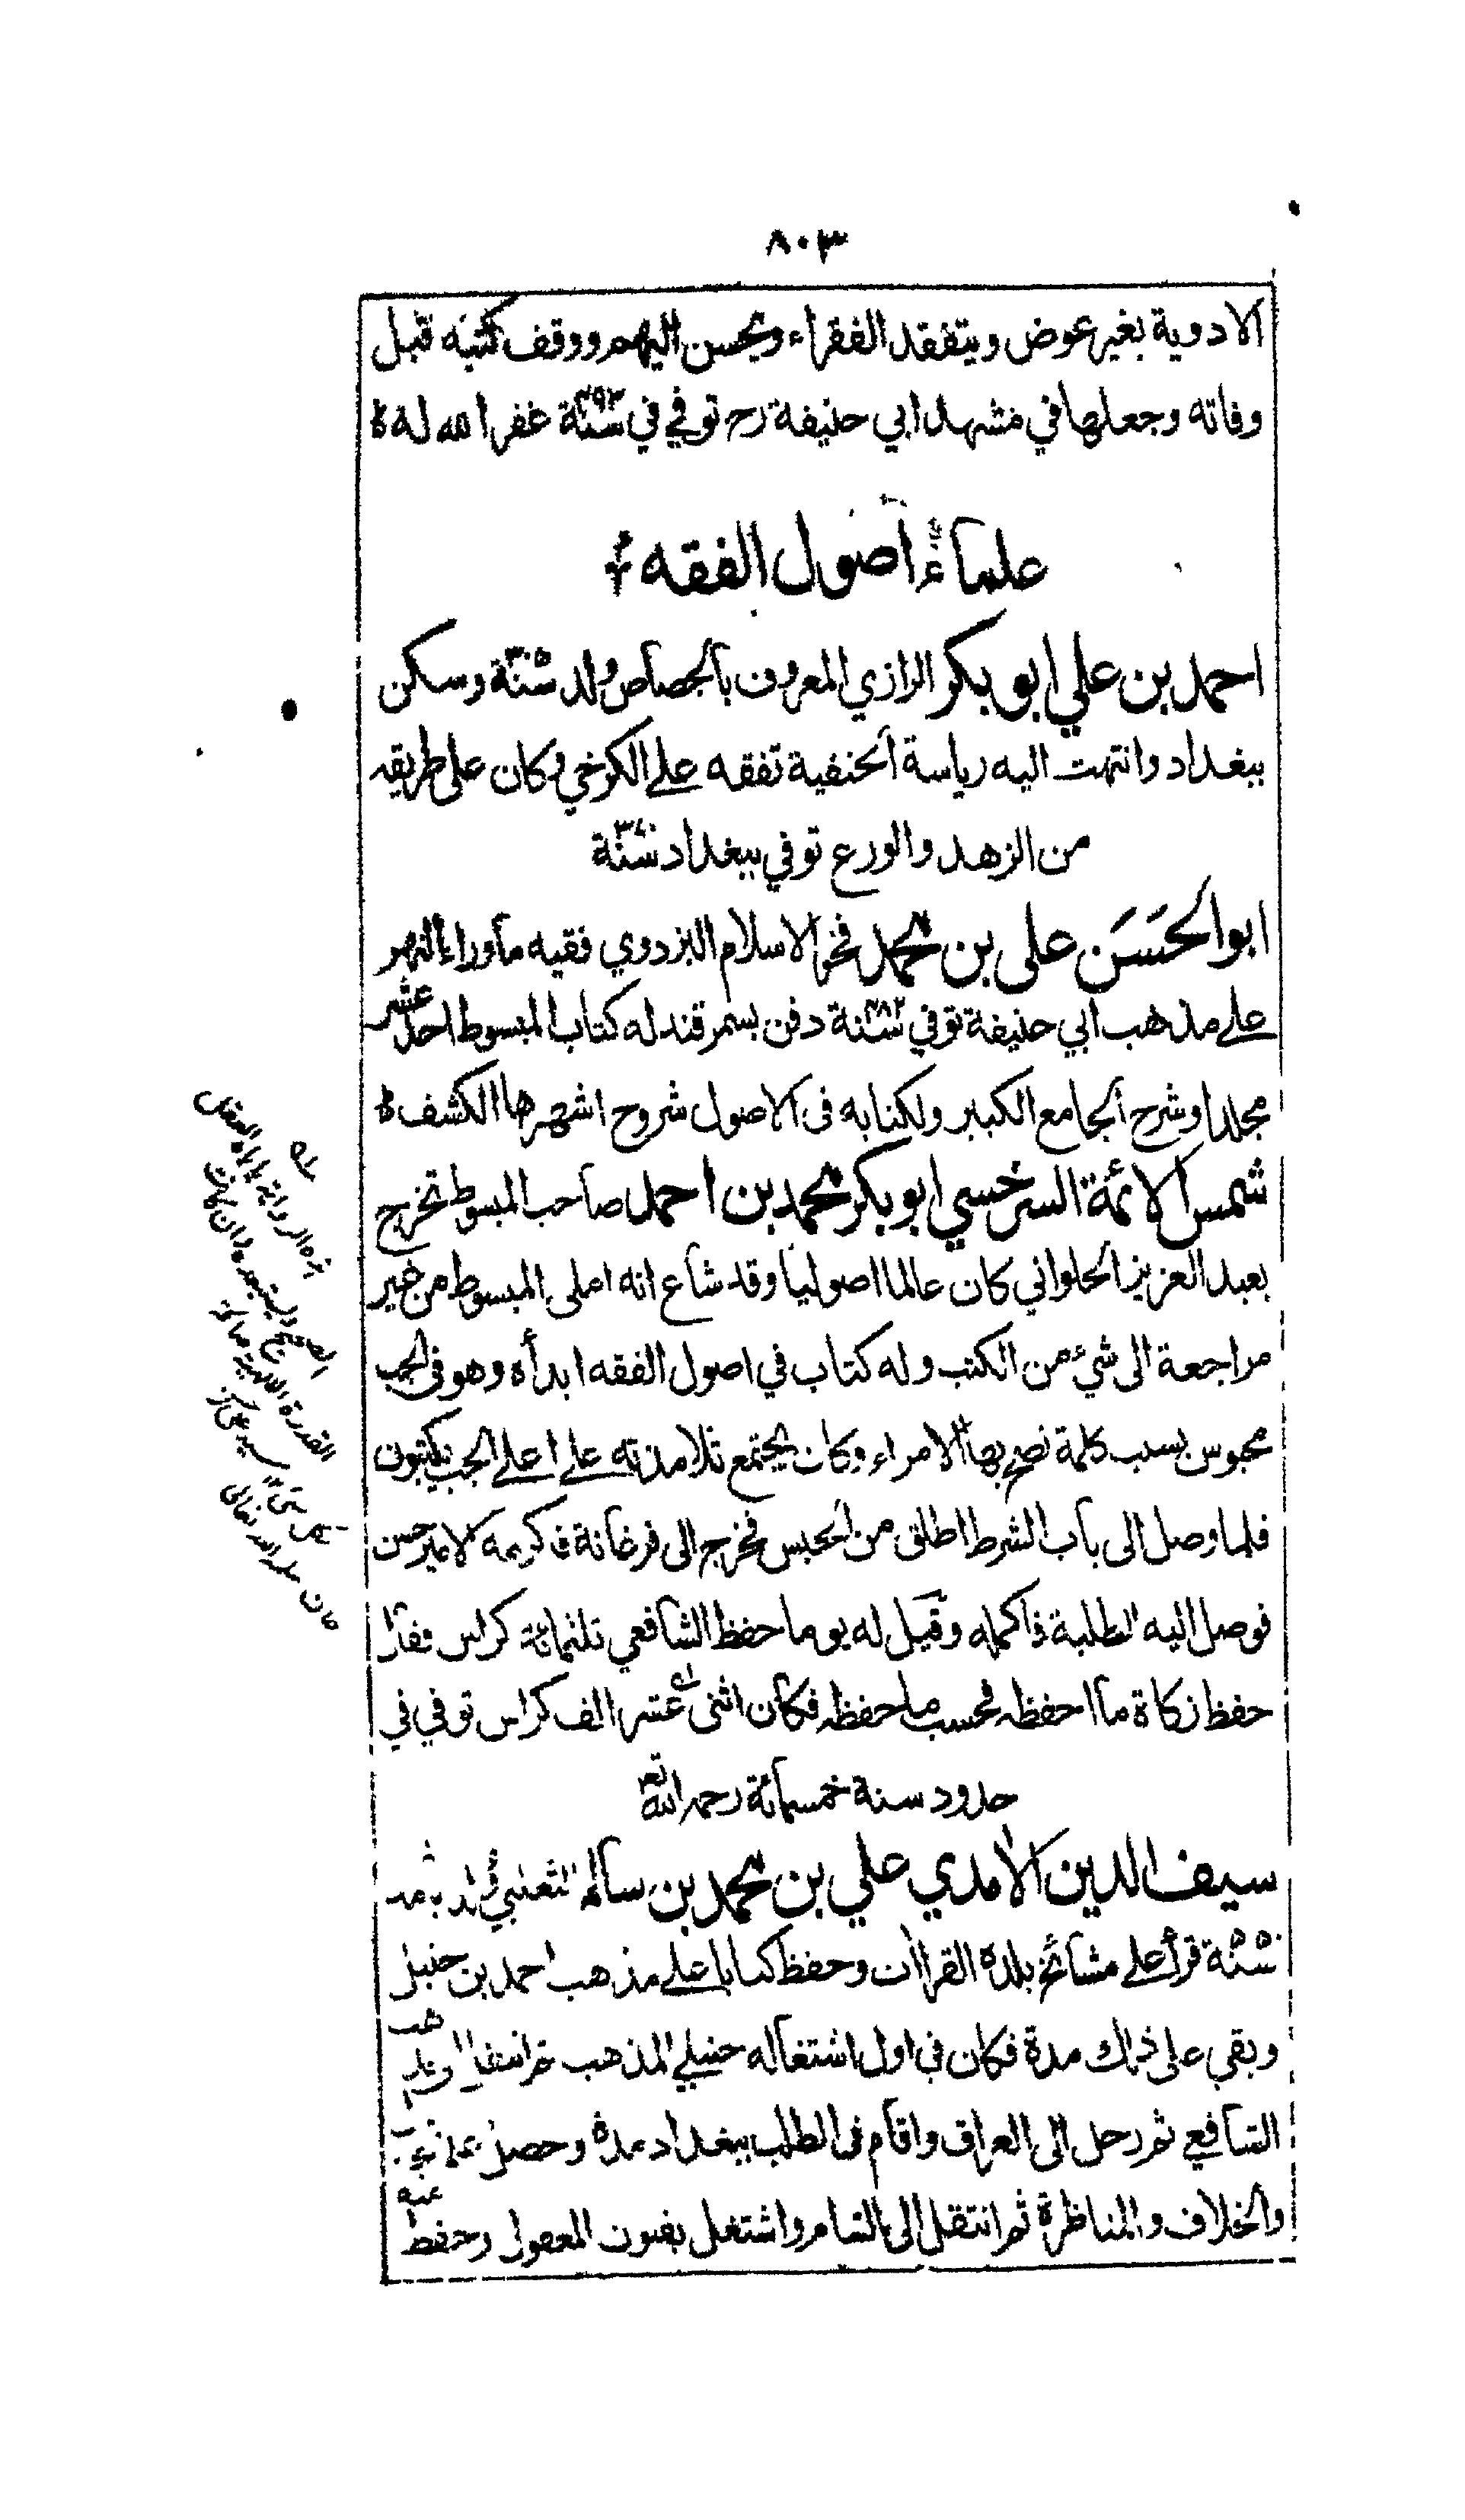 ٨٠٣
الادوية بغير عوض ويتفقد الفقراء ويحسن اليهم ووقف كتبه قبل
وفاته وجعلها في مشهد ابي حنيفة رح توفي في سنة ٤٩٣ غفر الله له
علماء اصول الفقه
احمد بن علي ابو بكر الرازي المعروف بالجصاص ولد سنة ٣٠٥ وسكن
ببغداد وانتهت اليه رياسة الحنفية تفقه على الكرخي وكان على طريقه
من الزهد والورع توفي ببغداد سنة ٣٧٠
ابو الحسن علي بن محمد فخر الاسلام البزدوي فقيه ما وراء النهر
على مذهب ابي حنيفة توفي سنة ٤٨٢ دفن بسمرقند له كتاب المبسوط احد عشر
مجلدا وشرح الجامع الكبير ولكتابه في الاصول شروح اشهرها الكشف
شمس الائمة السرخسي ابو بكر محمد بن احمد صاحب المبسوط تخرج
بعبد العزيز الحلواني كان عالما اصوليا وقد شاع انه املى المبسوط من غير
مراجعة الى شيء من الكتب وله كتاب في اصول الفقه ابدأه وهو في الجب
محبوس بسبب كلمة نصح بها الامراء وكان يجتمع تلامذته على اعلى الجب يكتبون
فلما وصل الى باب الشرط اطلق من الحبس فخرج الى فرغانة فاكرمه الامير حسن
فوصل اليه الطلبة فاكمله وقيل له يوما حفظ الشافعي ثلثمائة كراس فقال
حفظ زكاة ما احفظه فحسب ما حفظه فكان اثنى عشر الف كراس توفي في
حدود سنة خمسمائة رحمه الله تع
سيف الدين الامدي علي بن محمد بن سالم الثعلبي ولد بامد
سنة ٥٥٠ قرأ على مشائخ بلده القراان وحفظ كتابا على مذهب احمد بن حنبل
وبقي على ذلك مدة فكان في اول اشتغاله حنبلي المذهب ثم انتقل الى مذهب
الشافعي ثم رحل الى العراق واقام في الطلب ببغداد مدة وحصل علم
والخلاف والمناظرة ثم انتقل الى الشام واشتغل بفنون المعقول وحفظ
هذه الرواية
ان الله تعالى